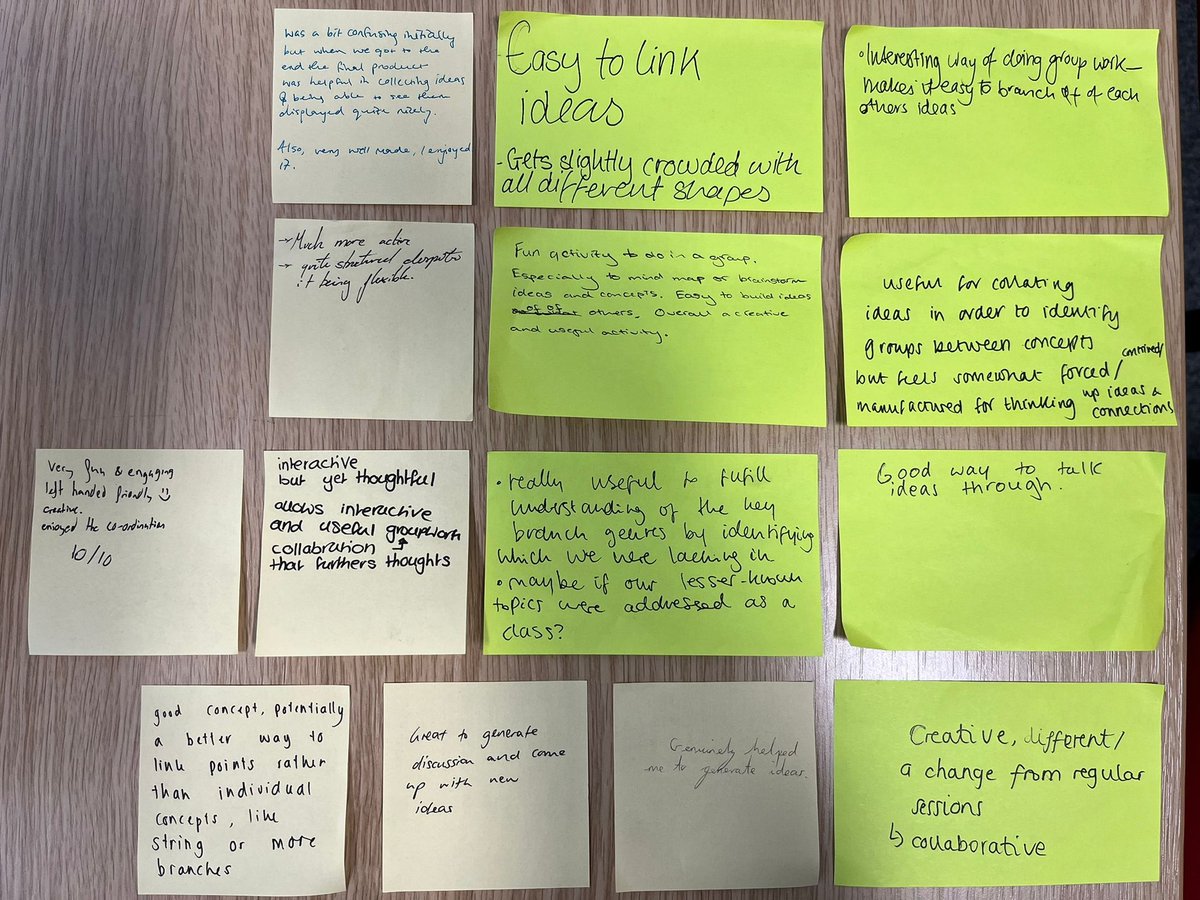 was a bit confusing initially
but when we got to the
end the final product
was helpful in collecting ideas
& being able to see them
displayed quite nicely.
Also, very well made, I enjoyed
it.
- Easy to link
ideas
- Gets slightly crowded with
all different shapes
• Interesting way of doing group work -
makes it easy to branch off of each
others ideas
→ Much more active
→ quite structured despite
it being flexible.
Fun activity to do in a group.
Especially to mind map or brainstorm
ideas and concepts. Easy to build ideas
of of
others. Overall a creative
and useful activity.
useful for collating
ideas in order to identify
groups between concepts
but feels somewhat forced/ contrived/
manufactured for thinking up ideas &
connections
Very fun & engaging
left handed friendly ☺
creative.
enjoyed the co-ordination
10/10
interactive
but yet thoughtful
allows interactive
and useful groupwork
collabration
that furthers thoughts
• really useful to fulfill
understanding of the key
branch genres by identifying
which we were lacking in
• maybe if our lesser-known
topics were addressed as a
class?
Good way to talk
ideas through.
good concept, potentially
a better way to
link points rather
than individual
concepts, like
string or more
branches
Great to generate
discussion and come
up with new
ideas
Genuinely helped
me to generate ideas.
Creative, different/
a change from regular
sessions
↳ collaborative